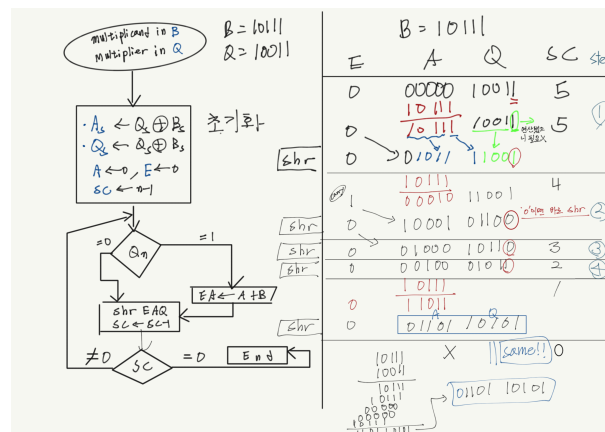 multiplicand in B
Multiplier in Q
B = 10111
Q = 10011
· As ← Qs ⊕ Bs
· Qs ← Qs ⊕ Bs
A ← 0, E ← 0
SC ← n-1
초기화
Qn
=0
=1
EA ← A + B
shr EAQ
SC ← SC-1
SC
≠0
=0
End
B = 10111
E A Q SC
0 00000 10011 5
10111
0 10111 10011 5 ①
shr 0 01011 11001
10111 4
1 00010 11001
shr 0 10001 01100 '0'이면 바로 shr ②
shr 0 01000 10110 3 ③
shr 0 00100 01011 2 ④
10111 1
0 11011
A Q
shr 0 01101 10101
X same!! 0
10111
10011
10111
10111
00000
00000
10111
01101 10101